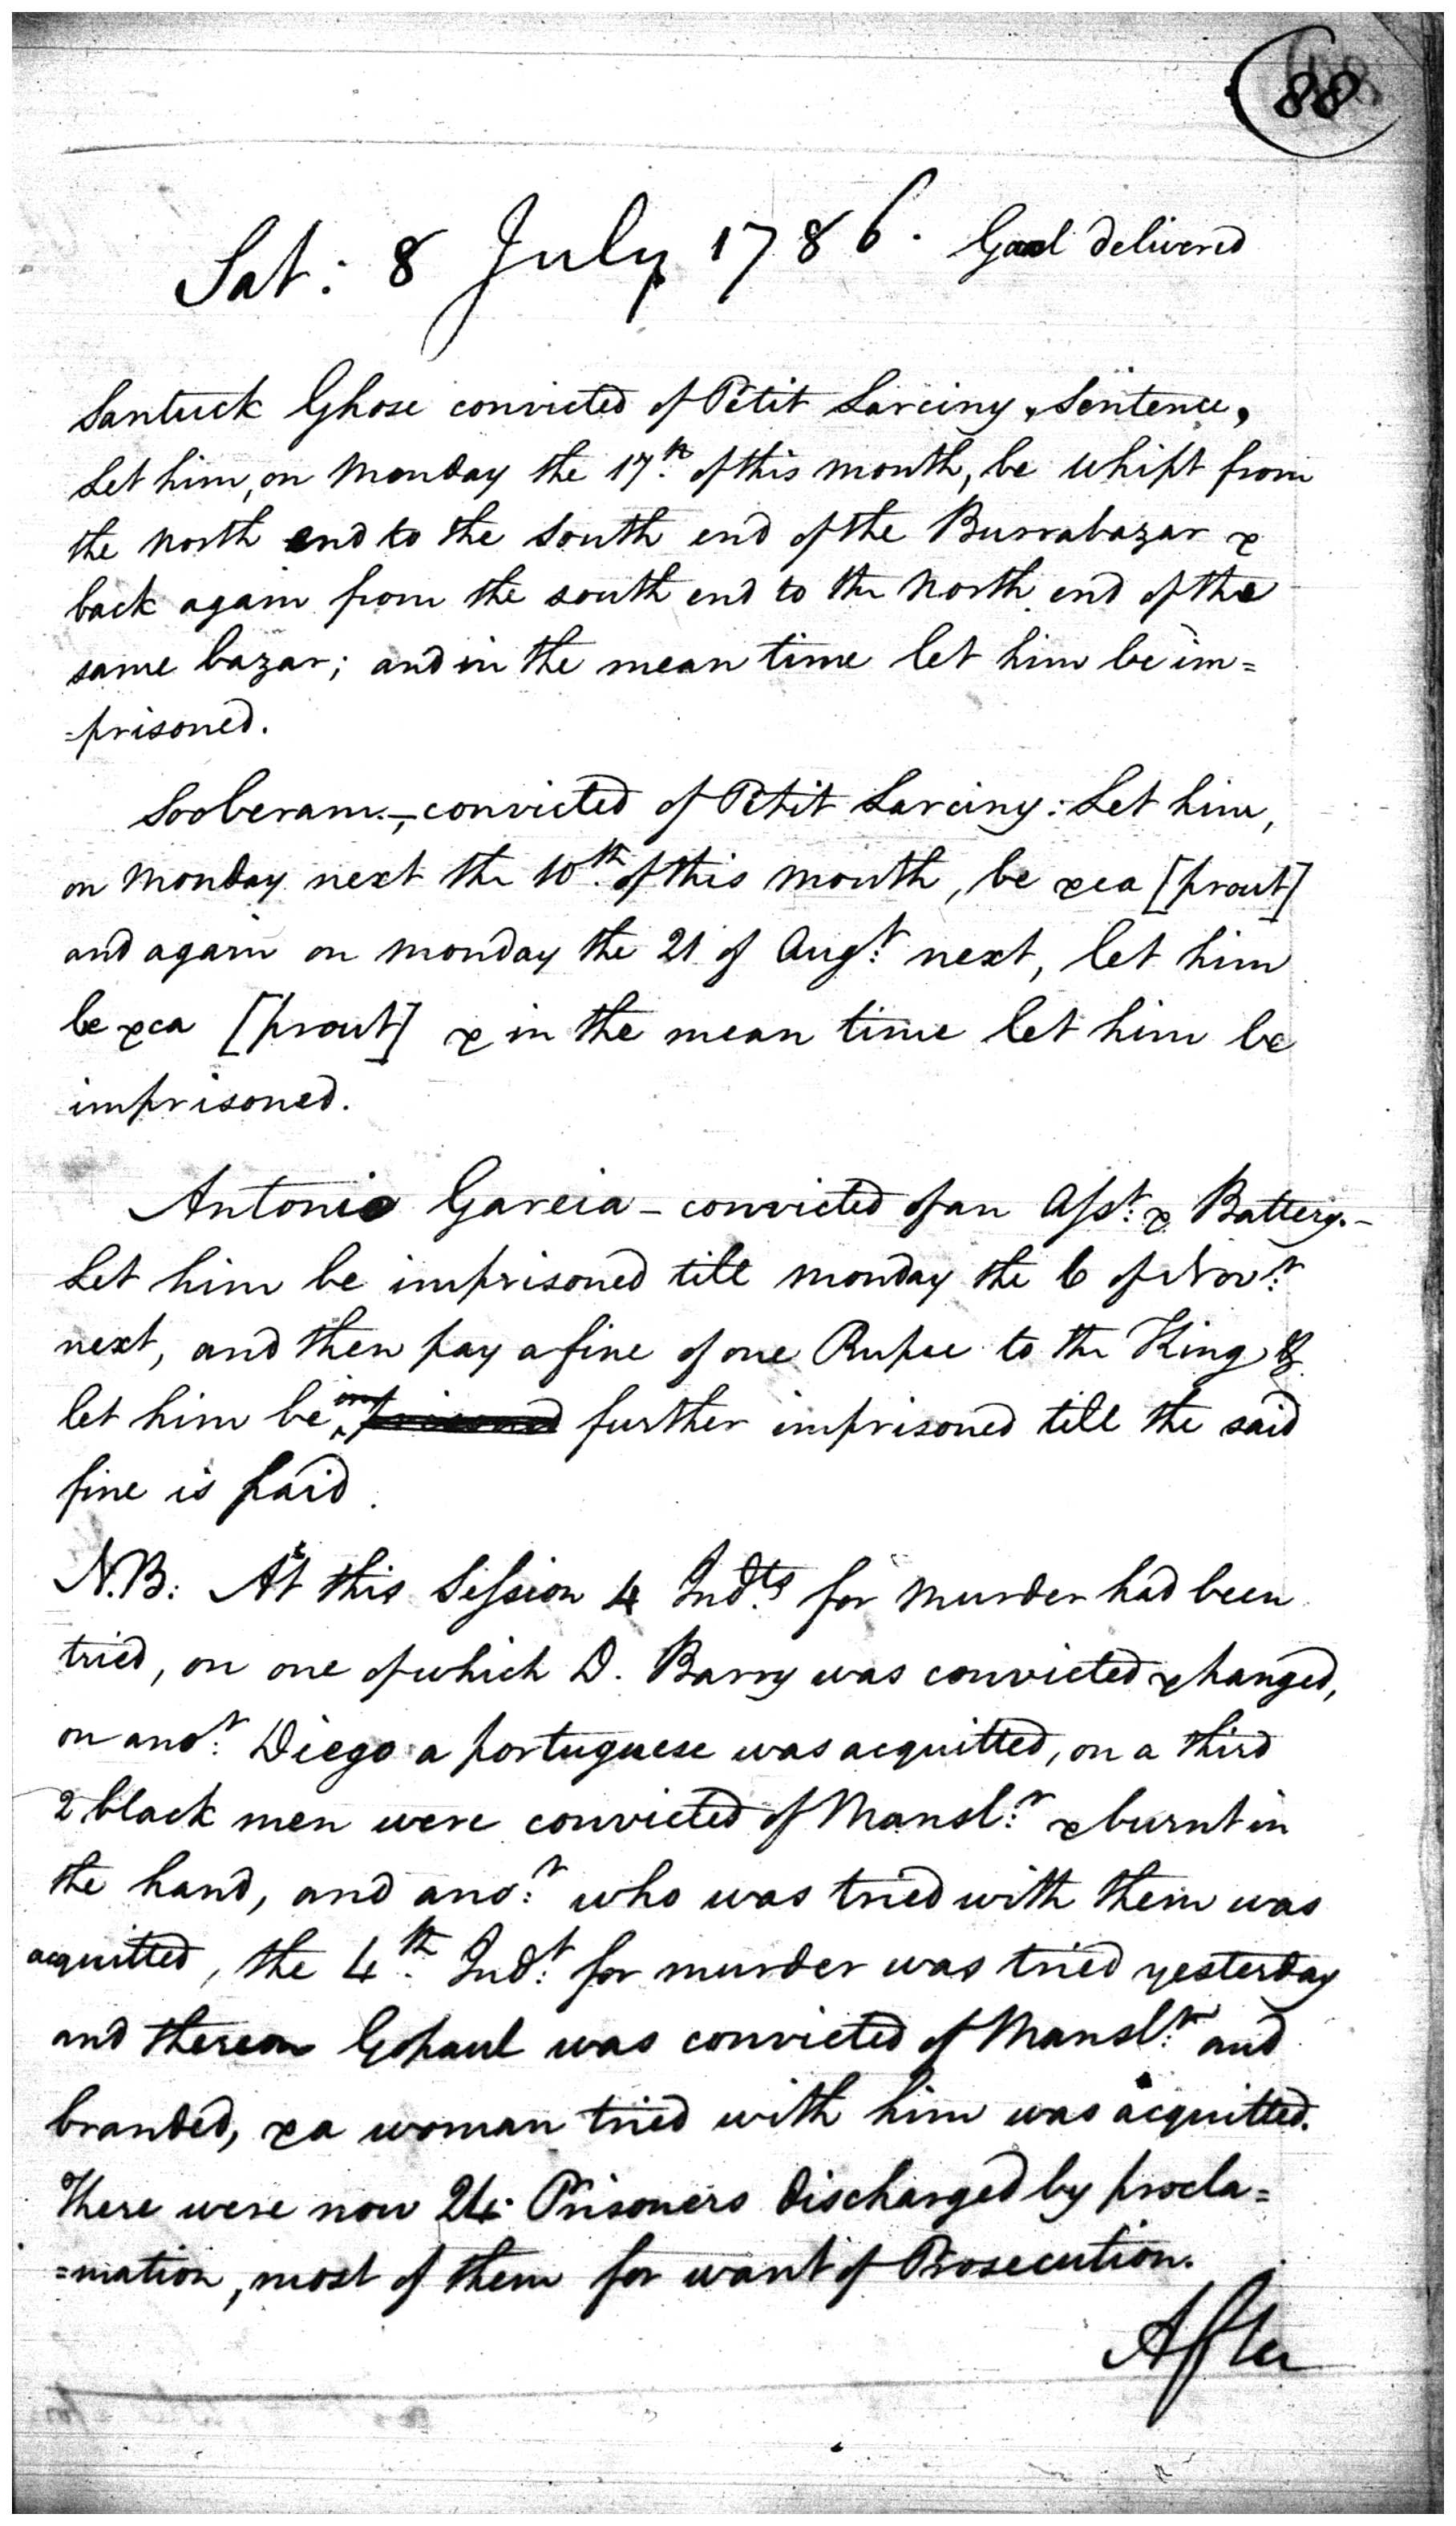 88
Sat: 8 July 1786. Gaol delivered
Santuck Ghose convicted of Petit Larciny. Sentence,
Let him, on Monday the 17th of this month, be whipt from
the north end to the south end of the Burrabazar &
back again from the south end to the north end of the
same bazar; and in the mean time let him be im=
=prisoned.
Sooberam.—convicted of Petit Larciny: Let him,
on Monday next the 10th of this month, be &ca [prout]
and again on Monday the 21 of Augt next, let him
be &ca [prout] & in the mean time let him be
imprisoned.
Antonio Garcia – convicted of an Asst: & Battery.–
Let him be imprisoned till Monday the 6 of Novr
next, and then pay a fine of one Rupee to the King &
let him be imprisoned further imprisoned till the said
fine is paid.
N.B: At this Session 4 Indts for murder had been
tried, on one of which D. Barry was convicted & hanged,
on anor: Diego a portuguese was acquitted, on a third
2 black men were convicted of Mansl:r & burnt in
the hand, and ano:r who was tried with them was
acquitted, the 4th Indt: for murder was tried yesterday
and thereon Gopaul was convicted of Mansl:r and
branded, & a woman tried with him was acquitted.
There were now 24 Prisoners discharged by procla=
=mation, most of them for want of Prosecution.
After